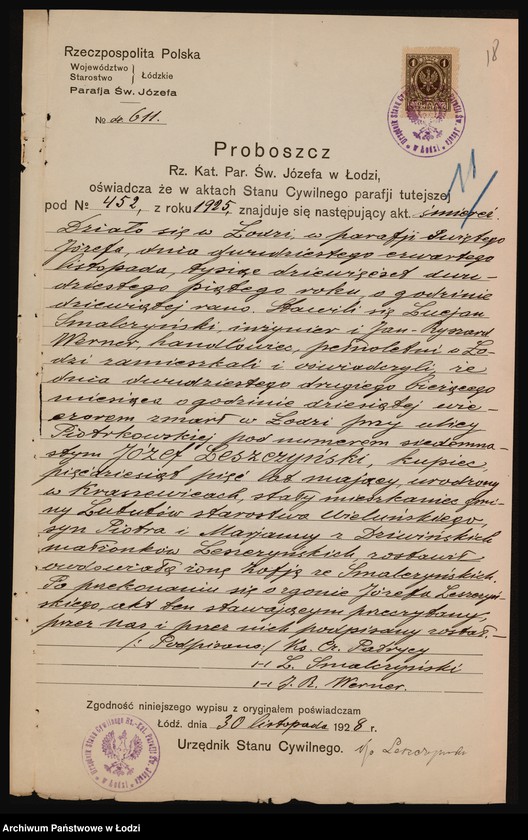 18
Rzeczpospolita Polska
Województwo
Starostwo
Łódzkie
Parafja Św. Józefa
№ 611.
11
Proboszcz
Rz. Kat. Par. Św. Józefa w Łodzi,
oświadcza że w aktach Stanu Cywilnego parafji tutejszej
pod № 452, z roku 1925, znajduje się następujący akt. śmierci
Działo się w Łodzi, w parafji Świętego
Józefa, dnia dwudziestego czwartego
listopada, tysiąc dziewięćset dwu-
dziestego piątego roku, o godzinie
dziewiątej rano. Stawili się Lucjan
Smalczyński inżynier i Jan-Ryszard
Werner, handlowiec, pełnoletni w Ło-
dzi zamieszkali i oświadczyli, że
dnia dwudziestego drugiego bieżącego
miesiąca o godzinie dziesiątej wie-
czorem zmarł w Łodzi przy ulicy
Piotrkowskiej pod numerem siedemna-
stym Józef Leszczyński, kupiec,
pięćdziesiąt pięć lat mający, urodzony
w Kraszewicach, stały mieszkaniec gmi-
ny Lututów starostwa Wieluńskiego,
syn Piotra i Marjanny z Dziwińskich
małżonków Leszczyńskich zostawił
owdowiałą żonę Zofję ze Smalczyńskich.
Po przekonaniu się o zgonie Józefa Leszczyń-
skiego, akt ten stawającym przeczytany,
przez nas i przez nich podpisany został.-
/: Podpisano:/ Ks. Cz.
L. Smalczyński
J. R. Werner.
Zgodność niniejszego wypisu z oryginałem poświadczam
Łódź, dnia 30 listopada 1928 r.
Urzędnik Stanu Cywilnego.
Archiwum Państwowe w Łodzi